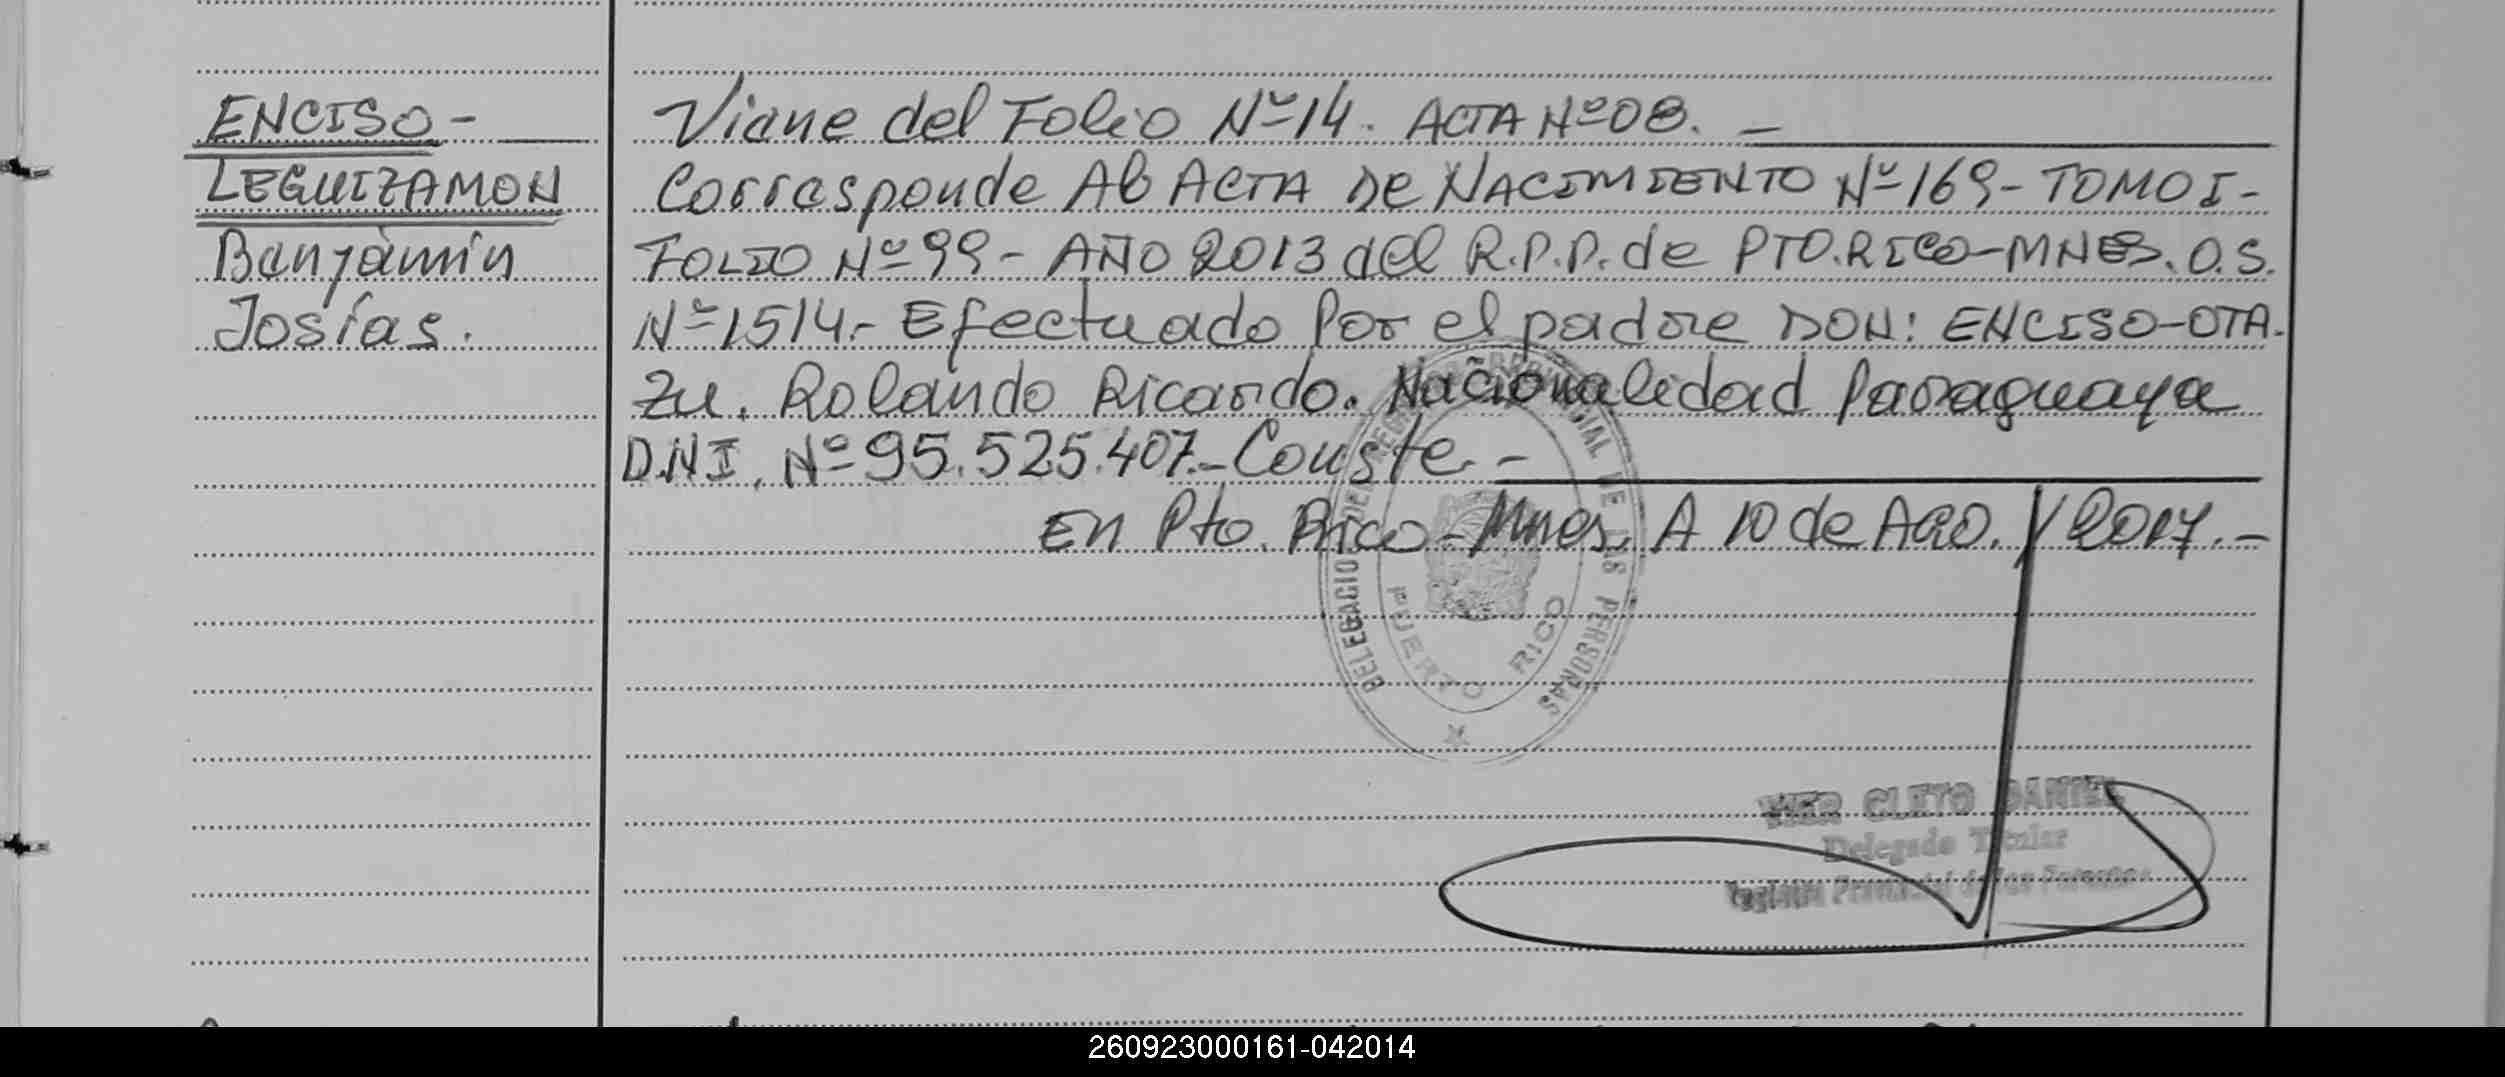 ENCISO-
LEGUIZAMON
Benjamín
Josías.
Viene del Folio Nº 14. ACTA Nº 08. _
Corresponde Al ACTA De NACIMIENTO Nº 169- TOMO I-
FOLIO Nº 99- AÑO 2013 del R.P.P. de PTO.RICO-MNES. O.S.
Nº 1514.- Efectuado Por el padre DON: ENCISO-OTA-
Zu. Rolando Ricardo. Nacionalidad Paraguaya
D.N.I. Nº 95.525.407.- Conste.-
En Pto. Rico-Mnes. A 10 de AGO. / 2017.-
DELEGACION DEL REGISTRO PROVINCIAL DE LAS PERSONAS
PUERTO RICO
CLETO DANIEL
Delegado Titular
Registro Provincial de las Personas
260923000161-042014